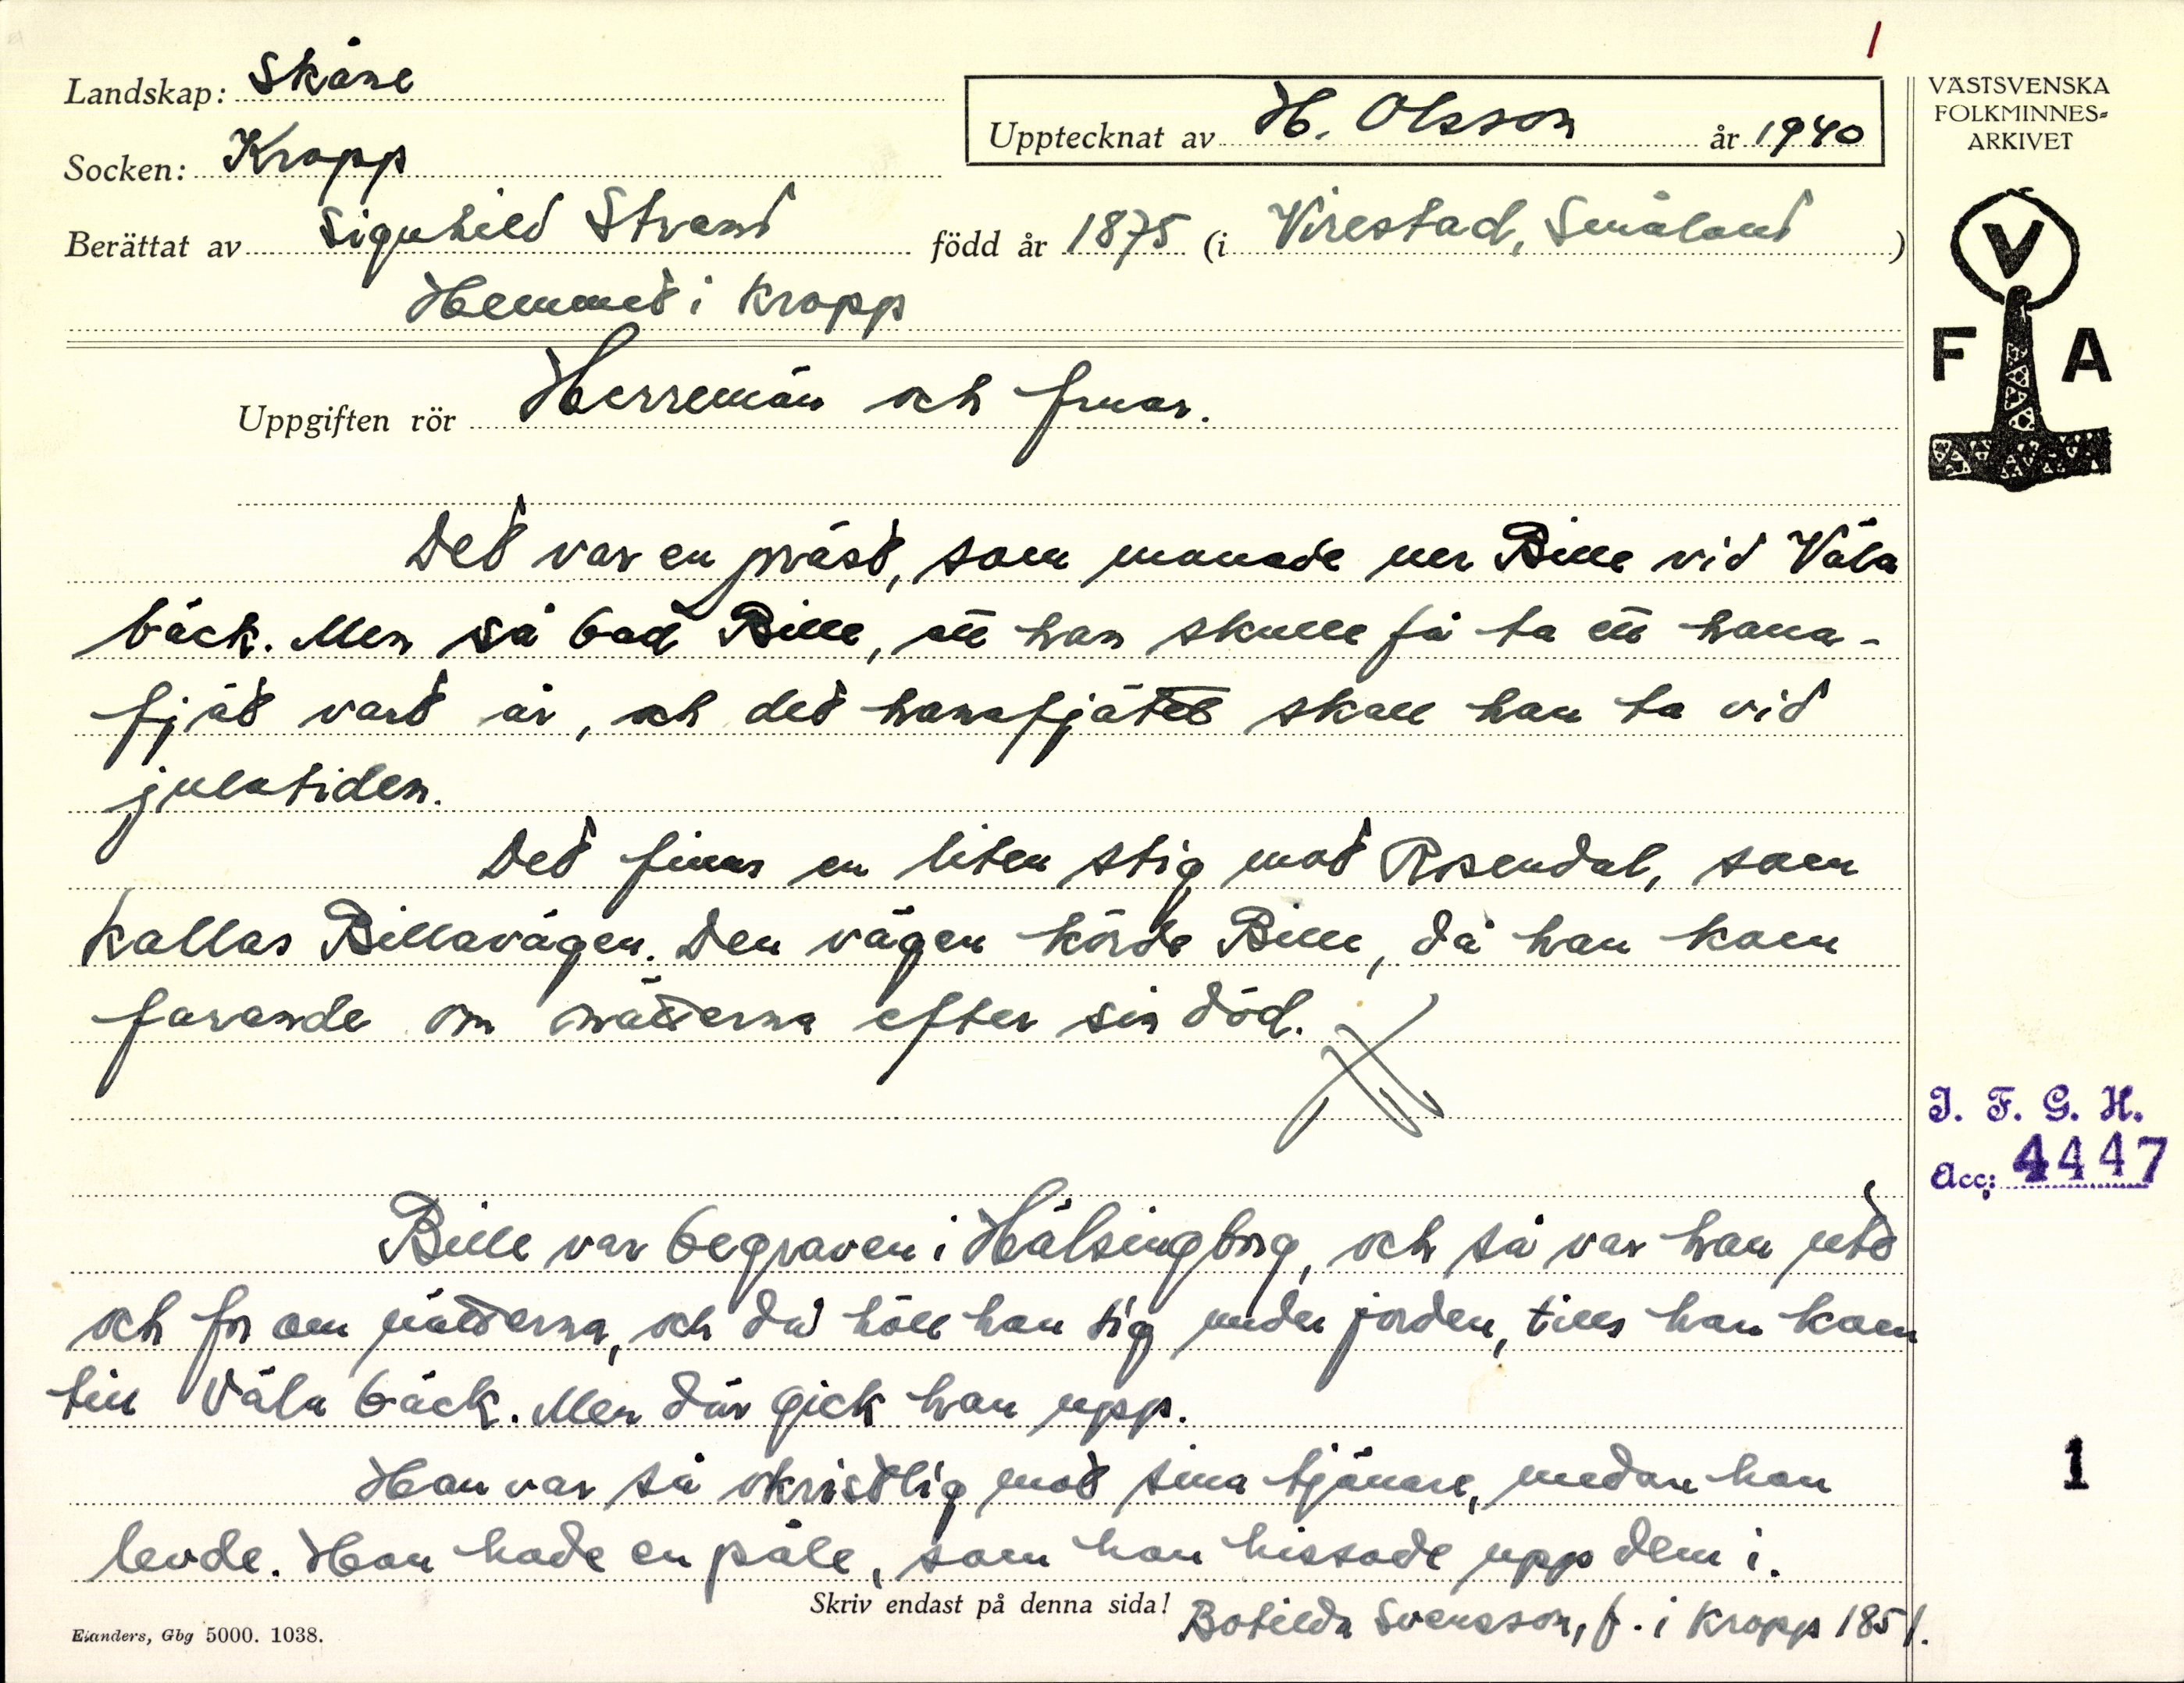 1
Landskap: Skåne
Socken: Kropp
Upptecknat av H. Olsson år 1940
Berättat av Signhild Strand född år 1875 (i Virestad, Småland)
Hemmet i Kropp
VÄSTSVENSKA
FOLKMINNES-
ARKIVET
V
F A
Uppgiften rör Herremän och fruar.
Det var en präst, som manade ner Bille vid Väla
bäck. Men så bad Bille, att han skulle få ta ett hana-
fjät vart år, och det hanafjätet skall han ta vid
julatiden.
Det finns en liten stig mot Rosendal, som
kallas Billavägen. Den vägen körde Bille, då han kom
farande om nätterna efter sin död.
I. F. G. H.
Acc: 4447
Bille var begraven i Hälsingborg, och så var han ute
och for om nätterna, och då höll han sig under jorden, tills han kom
till Väla bäck. Men där gick han upp.
Han var så okristlig mot sina tjänare, medan han
levde. Han hade en påle, som han hissade upp dem i.
1
Skriv endast på denna sida!
Botilda Svensson, f. i Kropp 1851.
Elanders, Gbg 5000. 1038.